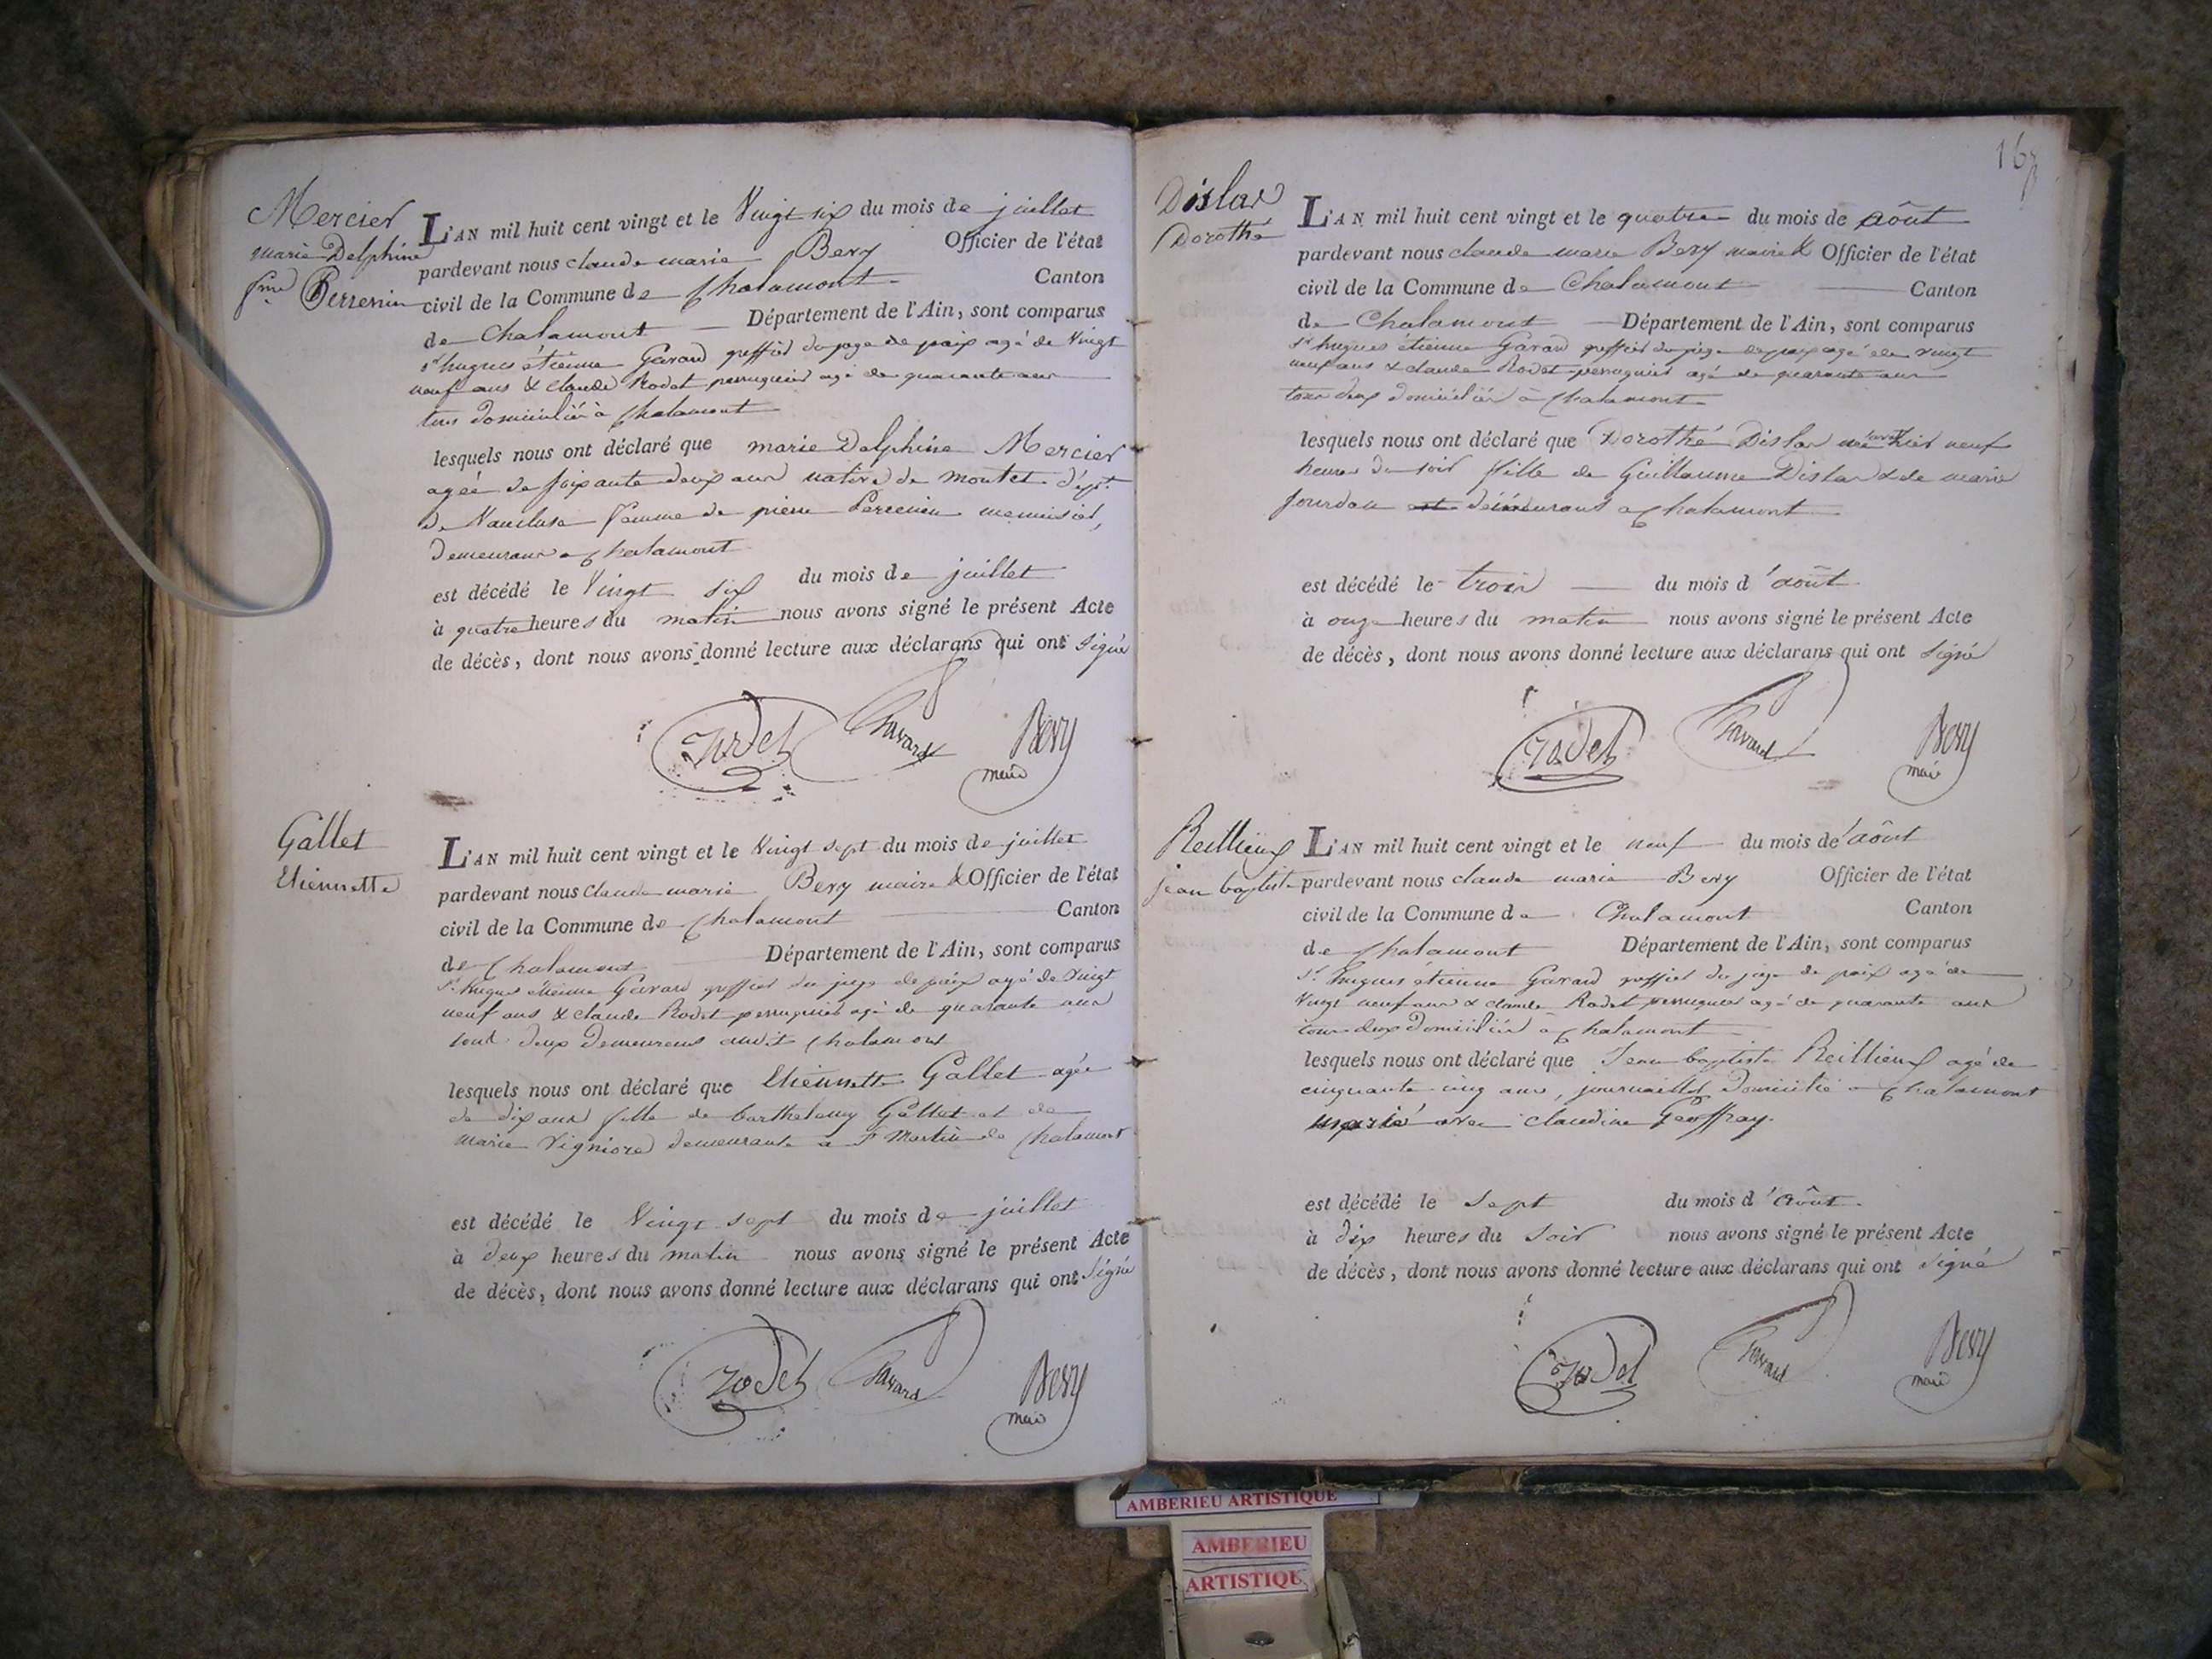 Mercier
marie Delphine
fme Perrenin
L'AN mil huit cent vingt et le Vingt six du mois de juillet
pardevant nous claude marie Bery Officier de l'état
civil de la Commune de Chalamont Canton
de Chalamont Département de l'Ain, sont comparus
sr hugues étienne Gavard greffier du juge de paix agé de Vingt
neuf ans & claude Rodet perruquier agé de quarante ans
tous domiciliés à Chalamont
lesquels nous ont déclaré que marie Delphine Mercier
agée de soixante deux ans native de montet dépt
de Vaucluse femme de pierre Perrenin menuisier,
demeurant a Chalamont
est décédé le Vingt six du mois de juillet
à quatre heures du matin nous avons signé le présent Acte
de décès, dont nous avons donné lecture aux déclarans qui ont signé
Rodet Gavard Bery
maire
Gallet
Etiennette
L'AN mil huit cent vingt et le Vingt sept du mois de juillet
pardevant nous Claude marie Bery maire & Officier de l'état
civil de la Commune de Chalamont Canton
de Chalamont Département de l'Ain, sont comparus
sr hugues étienne Gavard greffier du juge de paix agé de Vingt
neuf ans & claude Rodet perruquier agé de quarante ans
tout deux demeurens audit Chalamont
lesquels nous ont déclaré que Etiennette Gallet agée
de dix ans fille de barthelemy Gallet et de
marie Vigniore demeurante a St Martin de Chalamont
est décédé le Vingt sept du mois de juillet
à deux heures du matin nous avons signé le présent Acte
de décès, dont nous avons donné lecture aux déclarans qui ont signé
Rodet Gavard Bery
maire
167
Dislar
Dorothé
L'AN mil huit cent vingt et le quatre du mois de aôut
pardevant nous claude marie Bery maire & Officier de l'état
civil de la Commune de Chalamont Canton
de Chalamont Département de l'Ain, sont comparus
sr hugues étienne Gavard greffier du juge de paix agé de vingt
neuf ans & claude Rodet perruquier agé de quarante ans
tous deux domiciliés à Chalamont
lesquels nous ont déclaré que Dorothé Dislar née avant hier neuf
heures du soir fille de Guillaume Dislar & de marie
Jourdan demeurant a Chalamont
est décédé le trois du mois d'août
à onze heures du matin nous avons signé le présent Acte
de décès, dont nous avons donné lecture aux déclarans qui ont signé
Rodet Gavard Bery
maire
Reillieux
jean baptiste
L'AN mil huit cent vingt et le neuf du mois de aôut
pardevant nous claude marie Bery Officier de l'état
civil de la Commune de Chalamont Canton
de Chalamont Département de l'Ain, sont comparus
sr hugues étienne Gavard greffier du juge de paix agé de
Vingt neuf ans & claude Rodet perruquier agé de quarante ans
tous deux domiciliés a Chalamont
lesquels nous ont déclaré que Jean baptiste Reillieux agé de
cinquante cinq ans, journaillier domicilié a Chalamont
marié avec claudine Geoffray.
est décédé le sept du mois d'août
à dix heures du soir nous avons signé le présent Acte
de décès, dont nous avons donné lecture aux déclarans qui ont signé
Rodet Gavard Bery
maire
AMBERIEU ARTISTIQUE
AMBERIEU
ARTISTIQU